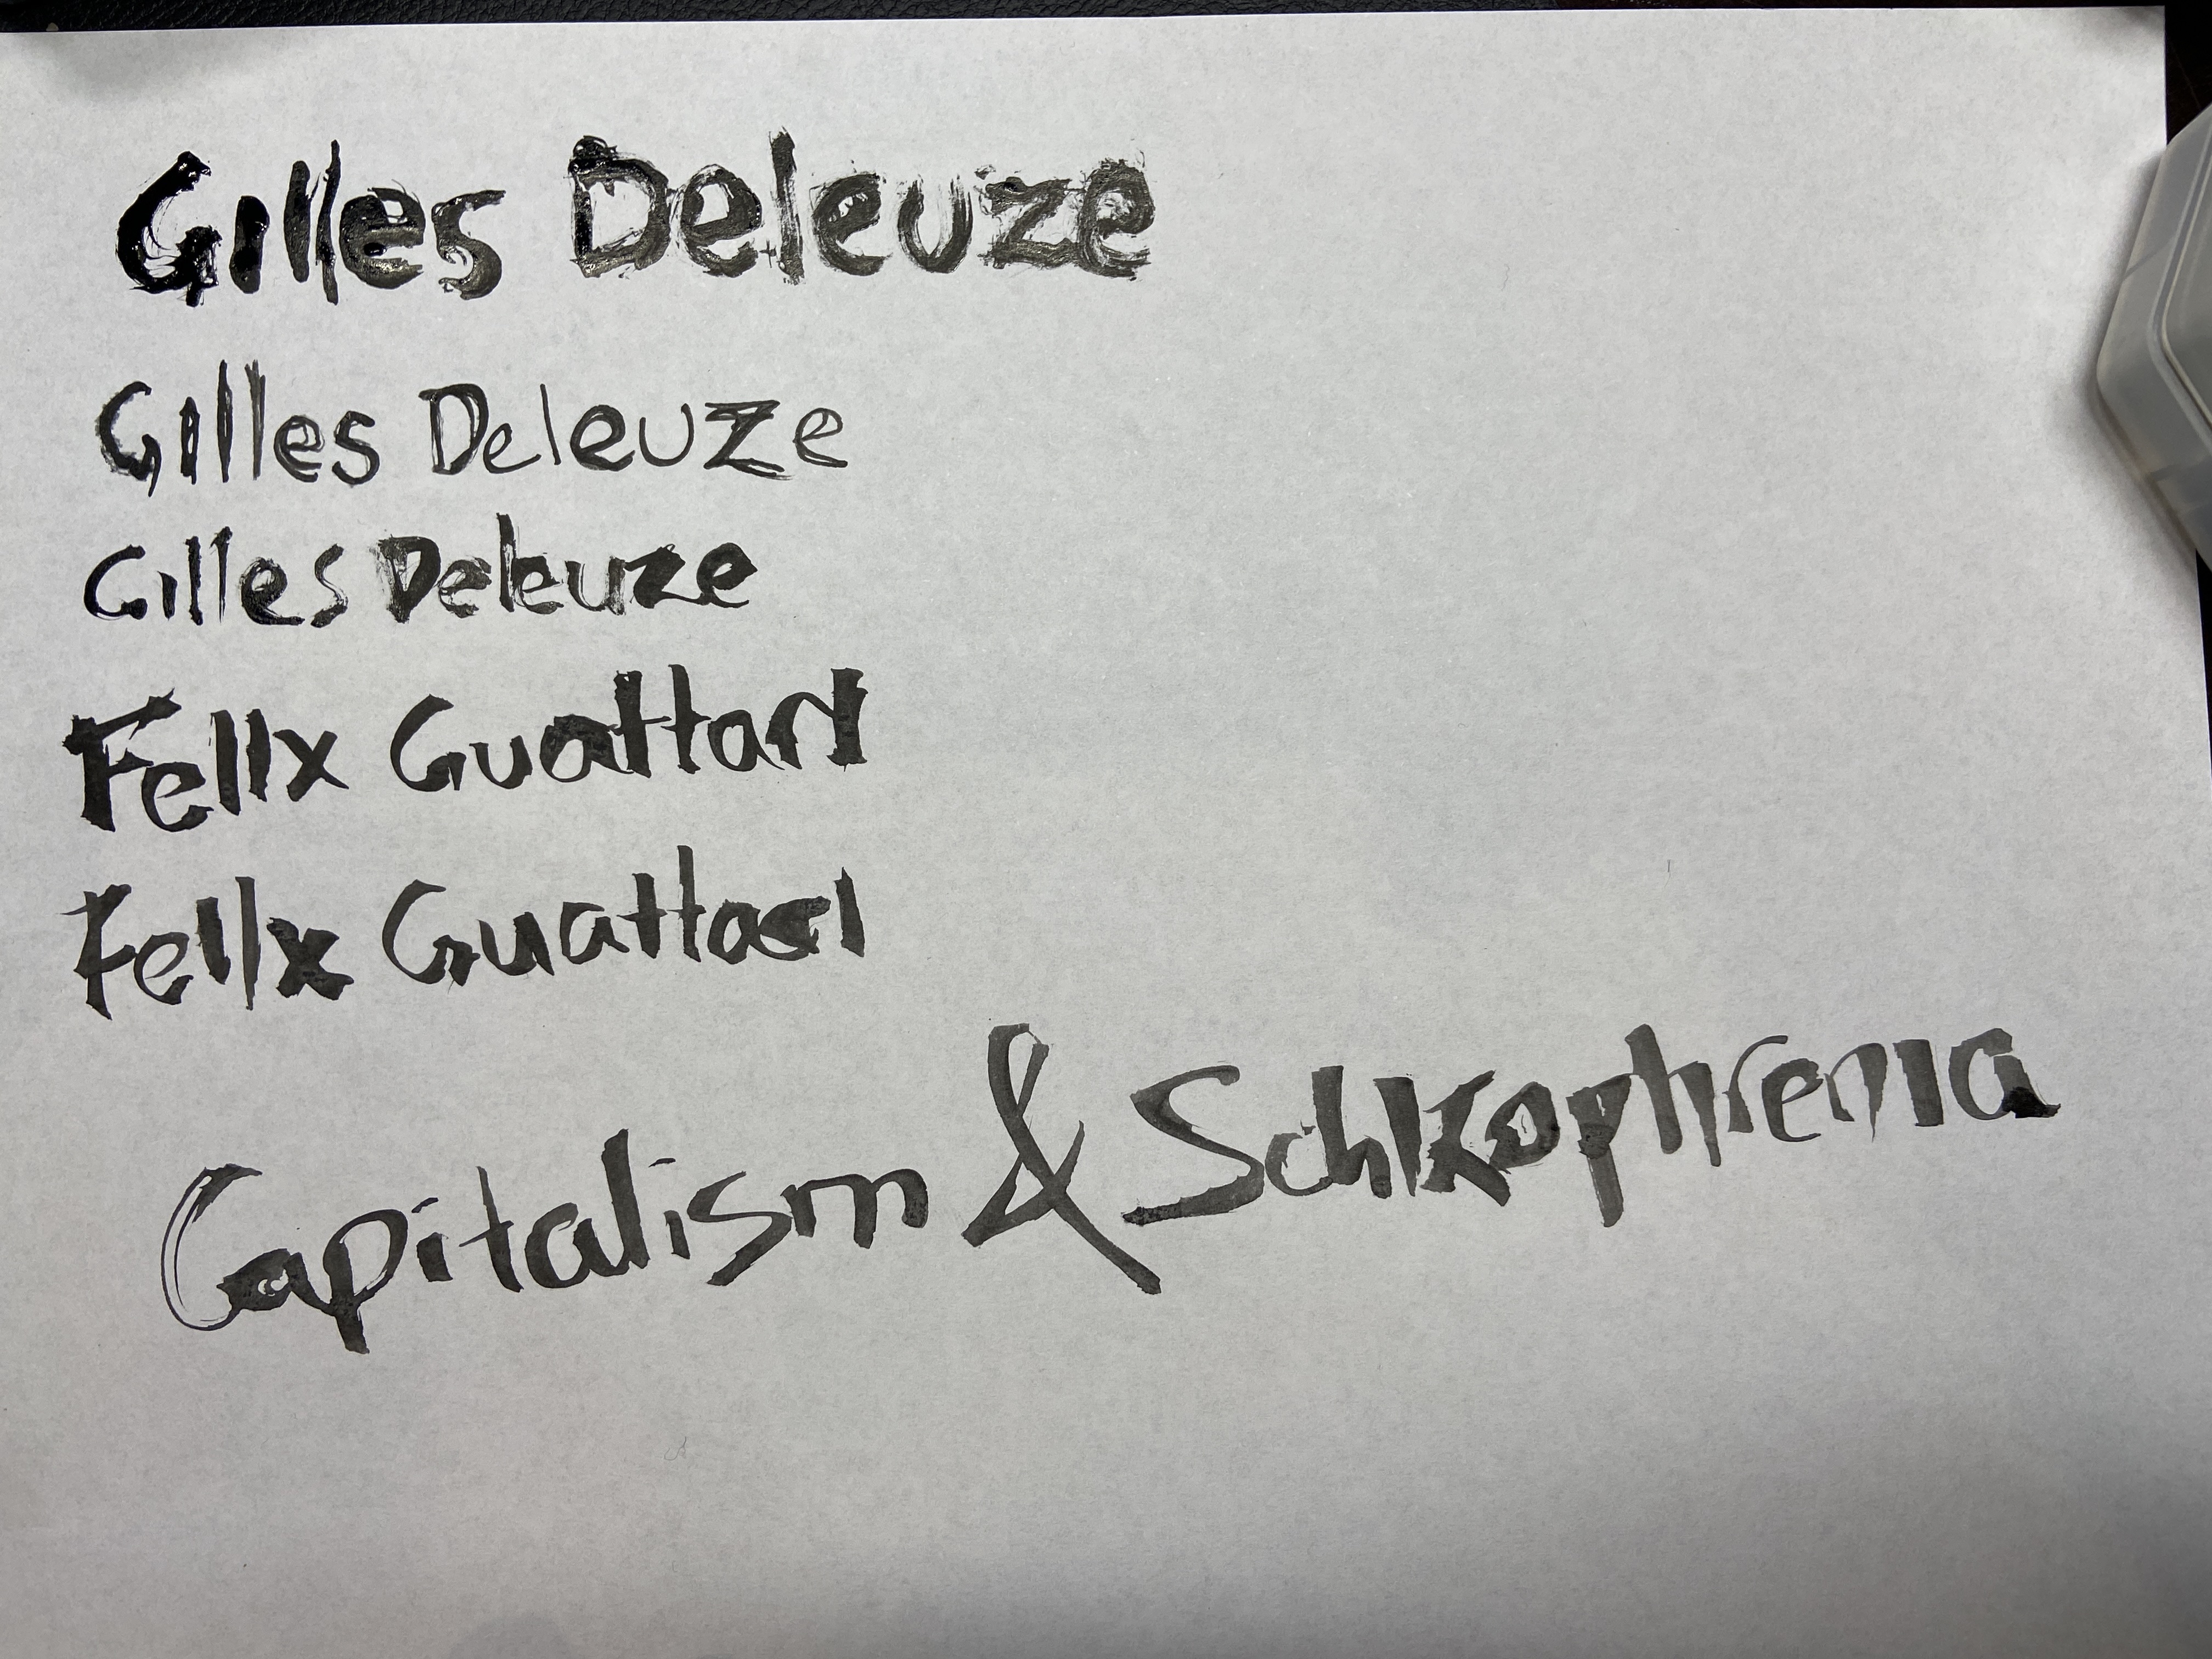 Gilles Deleuze
Gilles Deleuze
Gilles Deleuze
Felix Guattari
Felix Guattari
Capitalism & Schizophrenia